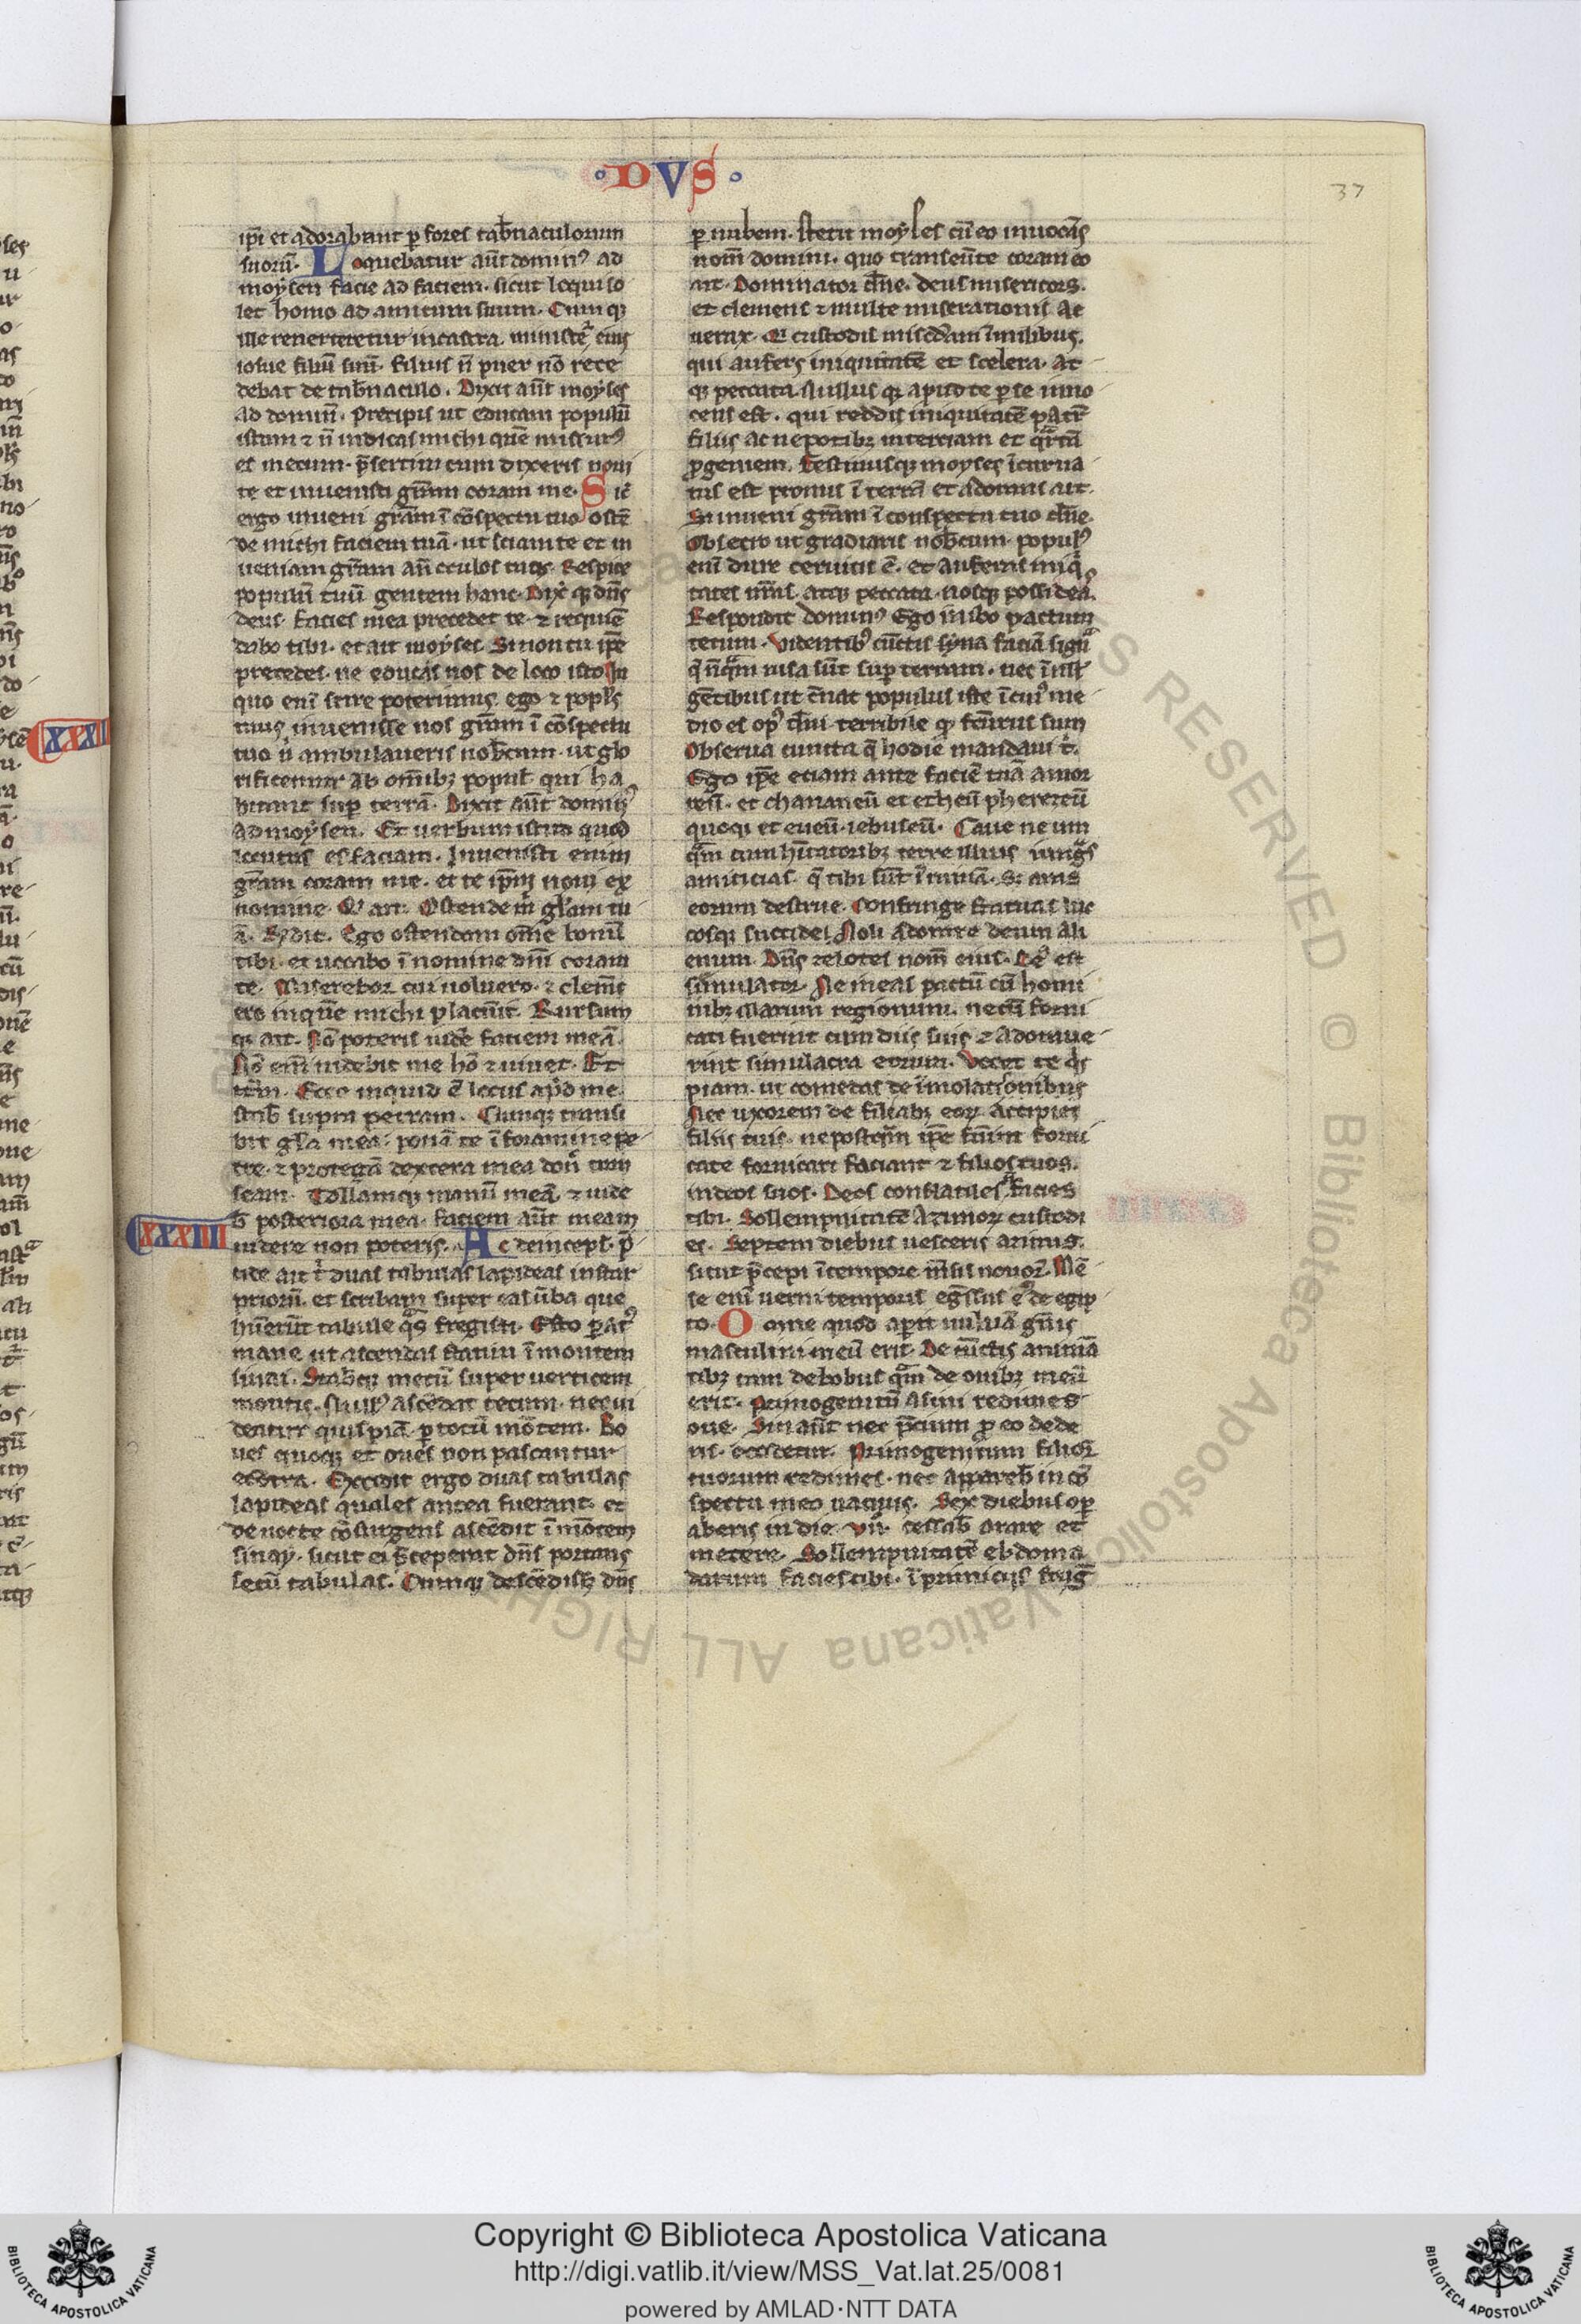 · D V S ·
37
ip̄i et adorabant p̲ fores tab̄naculorum
suorū. Loquebatur aūt dominꝰ ad
moysen facie ad faciem. sicut loqui so
let homo ad amicum suum. Cumqꝫ
ille reuerteretur in castra. ministẽ eius
iosue filiꝰ
debat de tab̄naculo. Dixit aūt moyses
ad domin̄. Precipis ut educam populū
istum ⁊ n̄ indicas michi quē missurꝰ
es mecum. p̄sertim cum dixeris noui
te et inuenisti grām coram me. Si
ergo inueni grām ī cōspectu tuo ostē
de michi faciem tuā. ut sciam te et in
ueniam grām an̄ oculos tuos. Respice
populū tuū gentem hanc. Dixꝭ qꝫ dn̄s
deus. Facies mea precedet te. ⁊ requiē
dabo tibi. et ait moyses. Si non tu ip̄e
precedes. ne educas nos de loco isto In
quo enī scire poterimus ego ⁊ popl̄s
tuus inuenisse nos grām ī cōspectu
tuo n̄ ambulaueris nob̄cum. ut glo
rificemur ab om̄ibꝫ popul̄ qui ha
bitant sup̲ terrā. Dixit aūt dominꝰ
ad moysen. Et uerbum istud quod
locutus es faciam. Inuenisti enim
grām coram me. et te ip̄m noui ex
nomine. Qͥ ait. Ostende m̄ gl̄am tu
ā. Rn̄dit. Ego ostendam om̄e bonū
tibi. et uocabo ī nomine dn̄i coram
te. Miserebor cui uoluero. ⁊ clem̄s
ero in quē michi placuīt. Rursum
qꝫ ait. Nō poteris uidē faciem meā.
Nō enī uidebit me hō ⁊ uiuet. Et
itm̄. Ecce inquid ē locus apd̄ me.
stab̄ supra petram. Cumqꝫ transi
bit gl̄a mea. ponā te ī foramine pe
tre. ⁊ protegā dextera mea don̄ tran
seam. Tollamqꝫ manū meā. ⁊ uide
b̄ posteriora mea. faciem aūt meam
XXXIIII uidere non poteris. Ac deinceps. p̄
cide ait tͥ duas tabulas lapideas instar
priorū. et scribam super eas ūba que
hūerūt tabule qͣs fregisti. Esto paratꝰ
mane ut ascendas statim ī montem
sinai. Stab̄qꝫ mecū super uerticem
montis. Nullꝰ ascēdat tecum. nec ui
deatur quispiā. p̲ totū mōtem. Bo
ues quoqꝫ et oues non pascantur
econtra. Excidit ergo duas tabulas
lapideas quales antea fuerant. et
de nocte cōsurgens ascēdit ī mōtem
sinay. sicut ei p̄ceperat dn̄s portans
secū tabulas. Cumqꝫ descēdissꝫ dn̄s
p̲ nubem. stetit moyses cū eo inuocās
nom̄ domini. quo transeūte coram eo
ait. Dominator dn̄e. deus misericors.
et clemens ⁊ multe miserationis ac
uerax. Qͥ custodis mīām ī milibus.
qui aufers iniquitatē et scelera. at
qꝫ peccata. Nullusqꝫ apud te p̲ se inno
cens est. qui reddis iniquitatē patr̄
filiis ac nepotibꝫ in terciam et qͣrtā
p̲geniem. Festinusqꝫ moyses īcurua
tus est pronus ī terrā et adorans ait.
Si inueni grām ī conspectu tuo dn̄e.
Obsecro ut gradiaris nob̄cum. populꝰ
enī dure ceruicis ē. et auferas iniqͥ
tates nr̄as. atqꝫ peccata. nosqꝫ possideās.
Respondit dominꝰ Ego inibo pactum
uidentibꝰ cūctis
q̄ nūqͣm uisa sūt sup̲ terram. nec ī ull̄
gētibus ut c̄nat populus iste ī cuiꝰ me
dio es opꝰ dn̄i terribile qͥ fc̄urus sum
Obserua cuncta q̄ hodie mandaui tͥ.
Ego ip̄e etiam ante faciē tuā amor
reū. et chananeū et etheū pherezeū
quoqꝫ et eueū. iebuseū. Caue ne um
qͣm cum hītatoribꝫ terre illius iungas
amicicias. q̄ tibi sūt ī ruinā. Sꝫ aras
eorum destrue. Confringe statuas lu
cosqꝫ succide. Noli adorare deum ali
enum. Dn̄s zelotes nom̄ eius. Dꝰ est
emulator. Ne ineas pactū cū homi
nibꝫ illarum regionum. ne cū forni
cati fuerint cum diis suis ⁊ adoraue
rint simulacra eorum. Vocet te qͥs
piam. ut comedas de īmolationibus
Nec uxorem de filiabꝫ eorꝝ accipies
filiis tuis. ne postqͣm ip̄e fūint forni
cate fornicari faciant ⁊ filios tuos.
in deos suos. Deos conflatiles n̄ facies
tibi. Sollempnitatē azimorꝝ custodi
es. Septem diebus uesceris azimis.
sicut p̄cepi ī tempore mēsis nouorꝝ. Mē
se enī uerni temporis eḡssus es de egip
to. Omne quod aperit uuluā gn̄is
masculini meū erit. De cūctis animā
tibꝫ tam de bobus qͣm de ouibꝫ meū
erit. Primogenitū asini redimes
oue. Sin aūt nec p̄cium p̲ eo dede
ris. occidetur. Primogenitum filiorꝝ
tuorum redimes. nec apparebꝭ in cō
spectu meo uacuus. Sex diebus op̲
aberis in die. vii. cessab̄ arare et
metere. Sollempnitatē ebdoma
darum facies tibi. ī primiciis fruḡ
XXXII
S RESERVED © Biblioteca Apostolica Vaticana ALL RIGHT
Copyright © Biblioteca Apostolica Vaticana
http://digi.vatlib.it/view/MSS_Vat.lat.25/0081
powered by AMLAD·NTT DATA
BIBLIOTECA APOSTOLICA VATICANA
BIBLIOTECA APOSTOLICA VATICANA